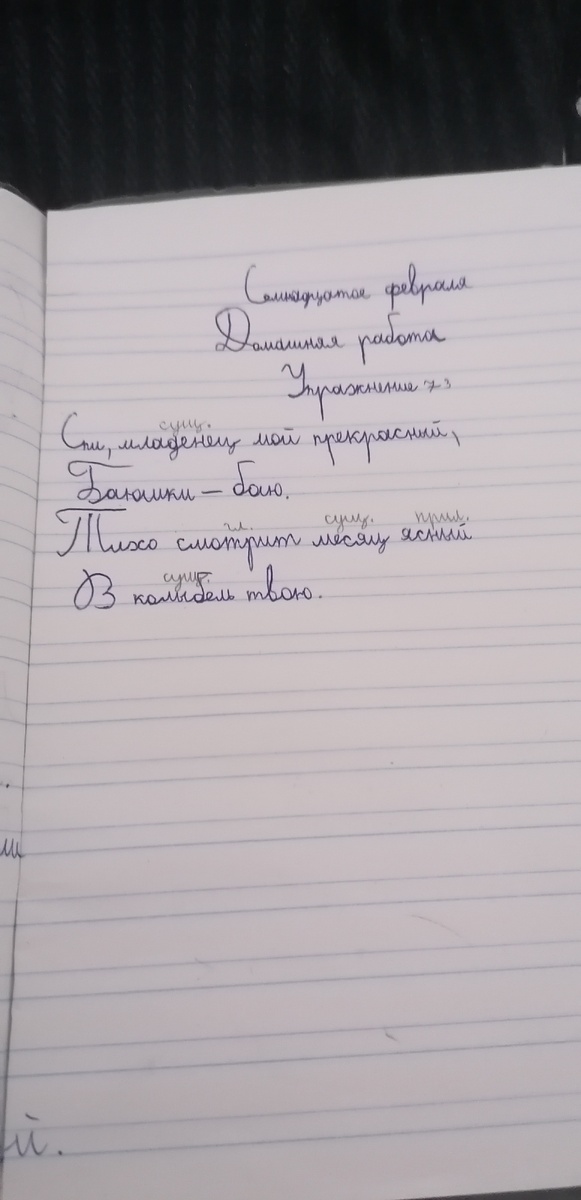 Семнадцатое февраля
Домашняя работа
Упражнение 73
сущ.
Спи, младенец мой прекрасный,
Баюшки – баю.
г. сущ. прил.
Тихо смотрит месяц ясный
сущ.
В колыбель твою.
ш
й.